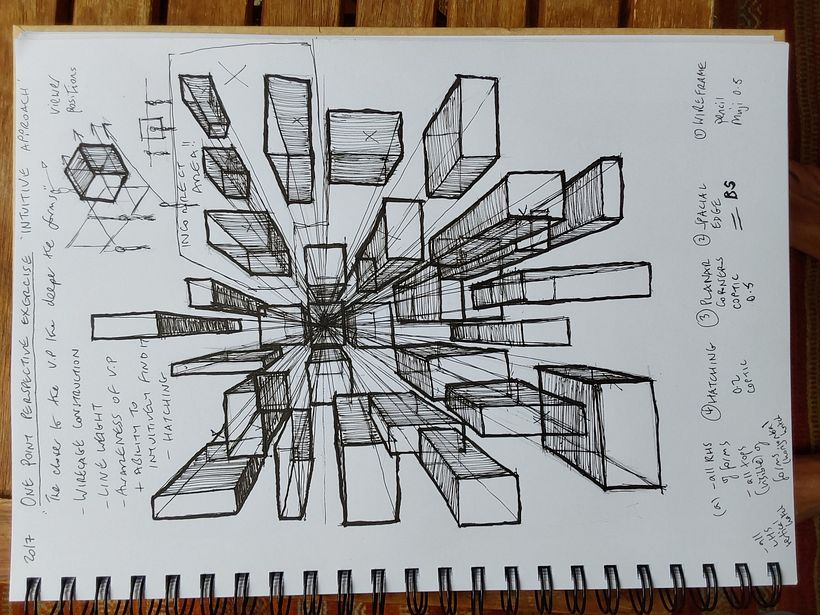 2017 ONE POINT PERSPECTIVE EXERCISE 'INTUITIVE APPROACH'
"The closer to the V.P the deeper the forms"
VIEWER
POSITIONS
- WIRECAGE CONSTRUCTION
- LINE WEIGHT
- AWARENESS OF V.P
+ ABILITY TO
INTUITIVELY FIND IT
- HATCHING
INCORRECT
AREA!!
① WIREFRAME
pencil
Muji 0.5
② SPACIAL
EDGE
BS
③ PLANAR
CORNERS
COPTIC
0.5
④ HATCHING
0.2
COPTIC
(a) - all RHS
of forms
- all tops
(visible) of
forms
- all
LHS